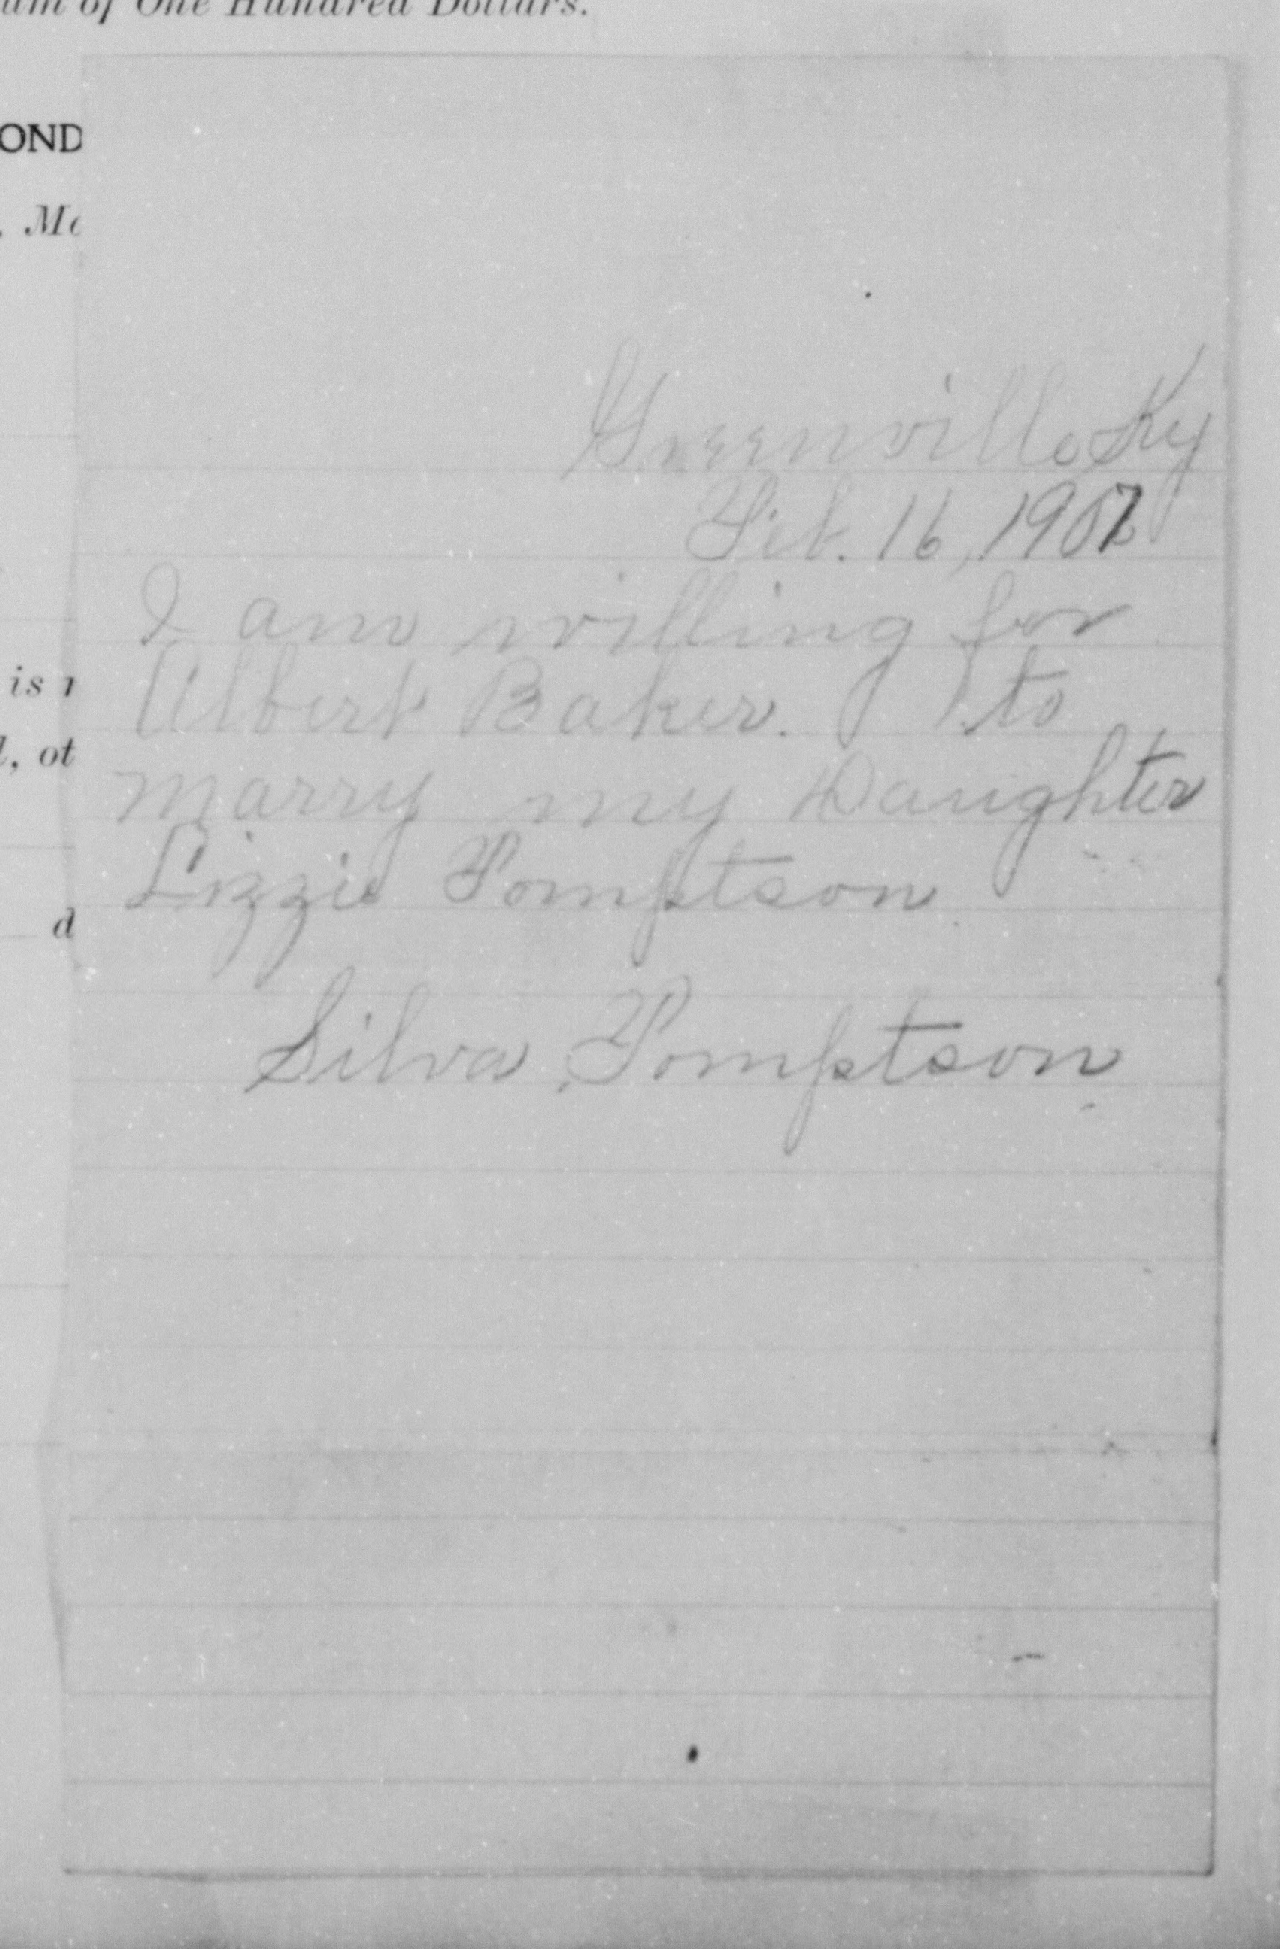 um of One Hundred Dollars.
OND
, Mc
Greenville Ky
Feb. 16, 1907
I am willing for
is r
Albert Baker. to
l, ot
marry my Daughter
Lizzie Tomptson
d
Silva Tomptson